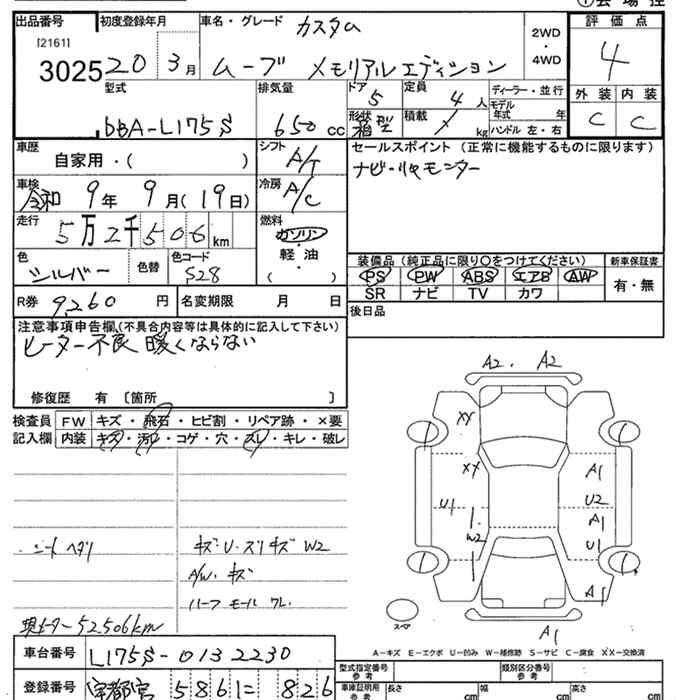 出品番号 初度登録年月 車名・グレード カスタム
[2161]
3025 20 3月 ムーブ メモリアルエディション 2WD・4WD
評価点
4
外装 内装
C C
型式 排気量 ドア 定員 ディーラー・並行
DBA-L175S 650cc 5 4人 モデル年式 年
形状 箱型 積載 kg ハンドル 左・右
車歴 自家用・( )
シフト A/T
セールスポイント(正常に機能するものに限ります)
ナビ・リヤモニター
車検 令和9年9月(19日)
冷房 A/C
走行 5万2千506km
燃料 ガソリン 軽油 ( )
色 シルバー 色替 色コード S28
装備品(純正品に限り○をつけてください) 新車保証書
PS PW ABS エアB AW 有・無
SR ナビ TV カワ
R券 9,260円 名変期限 月 日
後日品
注意事項申告欄(不具合内容等は具体的に記入して下さい)
ヒーター不良 暖くならない
修復歴 有 〔箇所 〕
検査員 FW キズ・飛石・ヒビ割・リペア跡・×要
記入欄 内装 キズ・汚レ・コゲ・穴・スレ・キレ・破レ
シートヘタリ
キズ・U・スリキズ W2
A/W. キズ
ハーフモールワレ
現メーター52506km
A2. A2
XY
XX A1
U1 U2
A1
W2 U1
A1
スマ
A1
A-キズ E-エクボ U-凹み W-補修跡 S-サビ C-腐食 XX-交換済
車台番号 L175S-0132230
登録番号 宇都宮 586 に 826
型式指定番号 参考 類別区分番号 参考
車庫証明用 参考 長さ cm 幅 cm 高さ cm